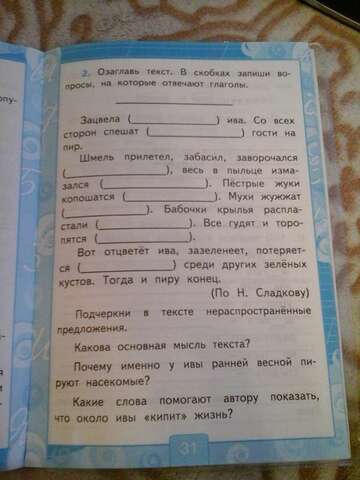 2. Озаглавь текст. В скобках запиши во-
просы, на которые отвечают глаголы.
Зацвела ( ) ива. Со всех
сторон спешат ( ) гости на
пир.
Шмель прилетел, забасил, заворочался
( ), весь в пыльце изма-
зался ( ). Пёстрые жуки
копошатся ( ). Мухи жужжат
( ). Бабочки крылья распла-
стали ( ). Все гудят и торо-
пятся ( ).
Вот отцветёт ива, зазеленеет, потеряет-
ся ( ) среди других зелёных
кустов. Тогда и пиру конец.
(По Н. Сладкову)
Подчеркни в тексте нераспространённые
предложения.
Какова основная мысль текста?
Почему именно у ивы ранней весной пи-
руют насекомые?
Какие слова помогают автору показать,
что около ивы «кипит» жизнь?
31